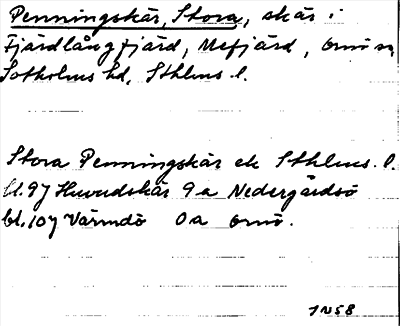 Penningskär, Stora, skär i
Fjärdlångfjärd, Mefjärd, Ornö sn,
Sotholms hd, Sthlms l.
Stora Penningskär ek Sthlms l.
bl. 97 Huvudskär 9a Nedergårdsö
bl. 107 Värmdö 0a Ornö.
1N58